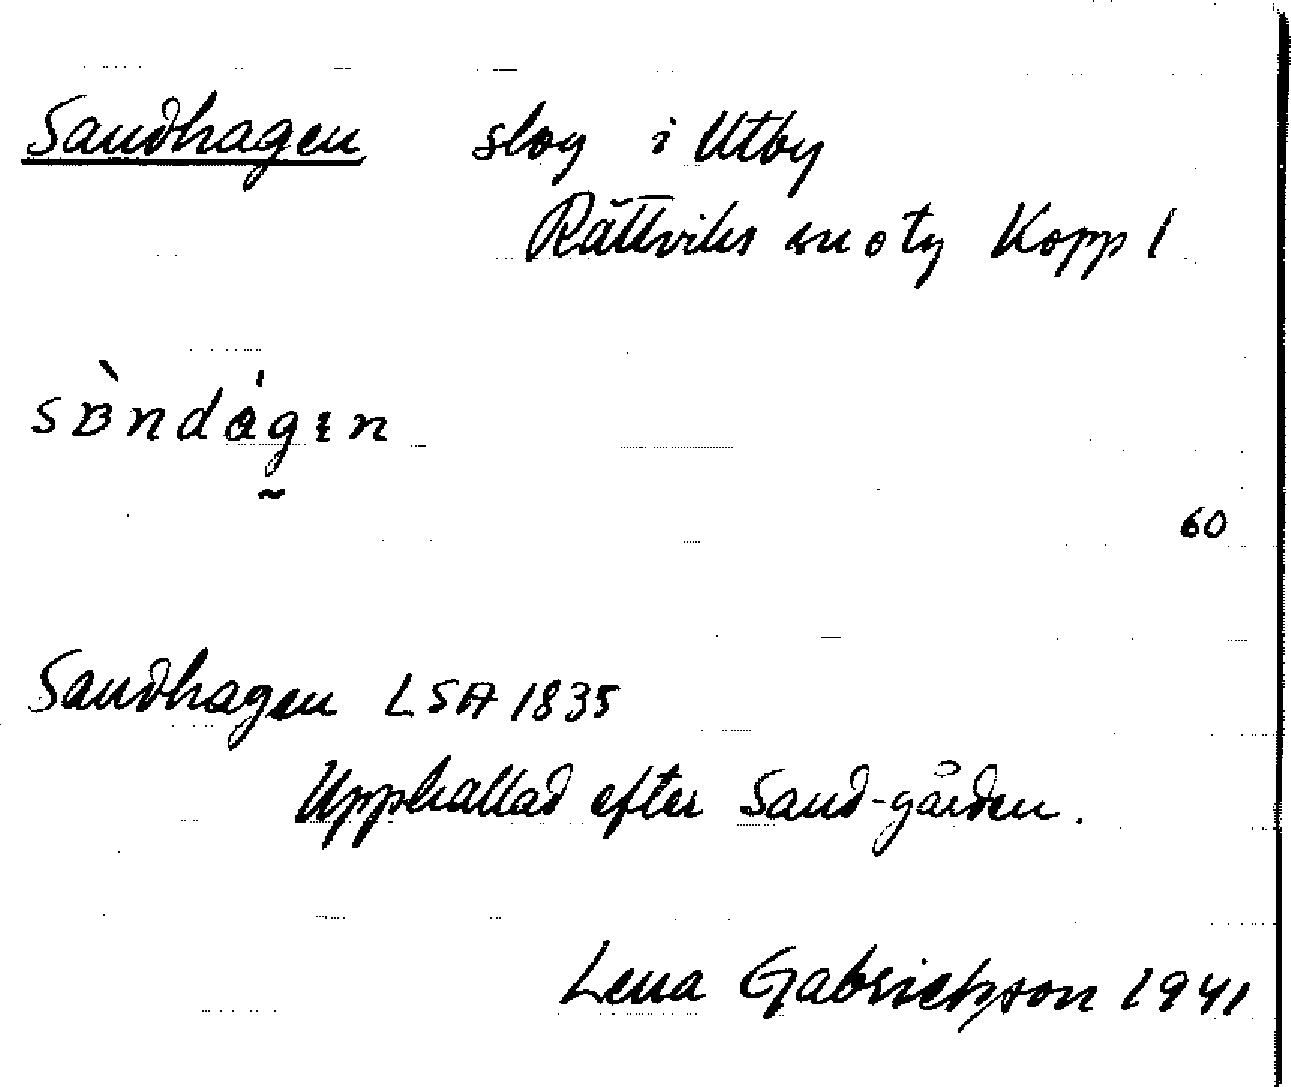 Sandhagen slog i Utby
Rättviks sn o tg Kopp l
60
Sandhagen LSA 1835
Uppkallad efter Sand-gården.
Lena Gabrielsson 1941